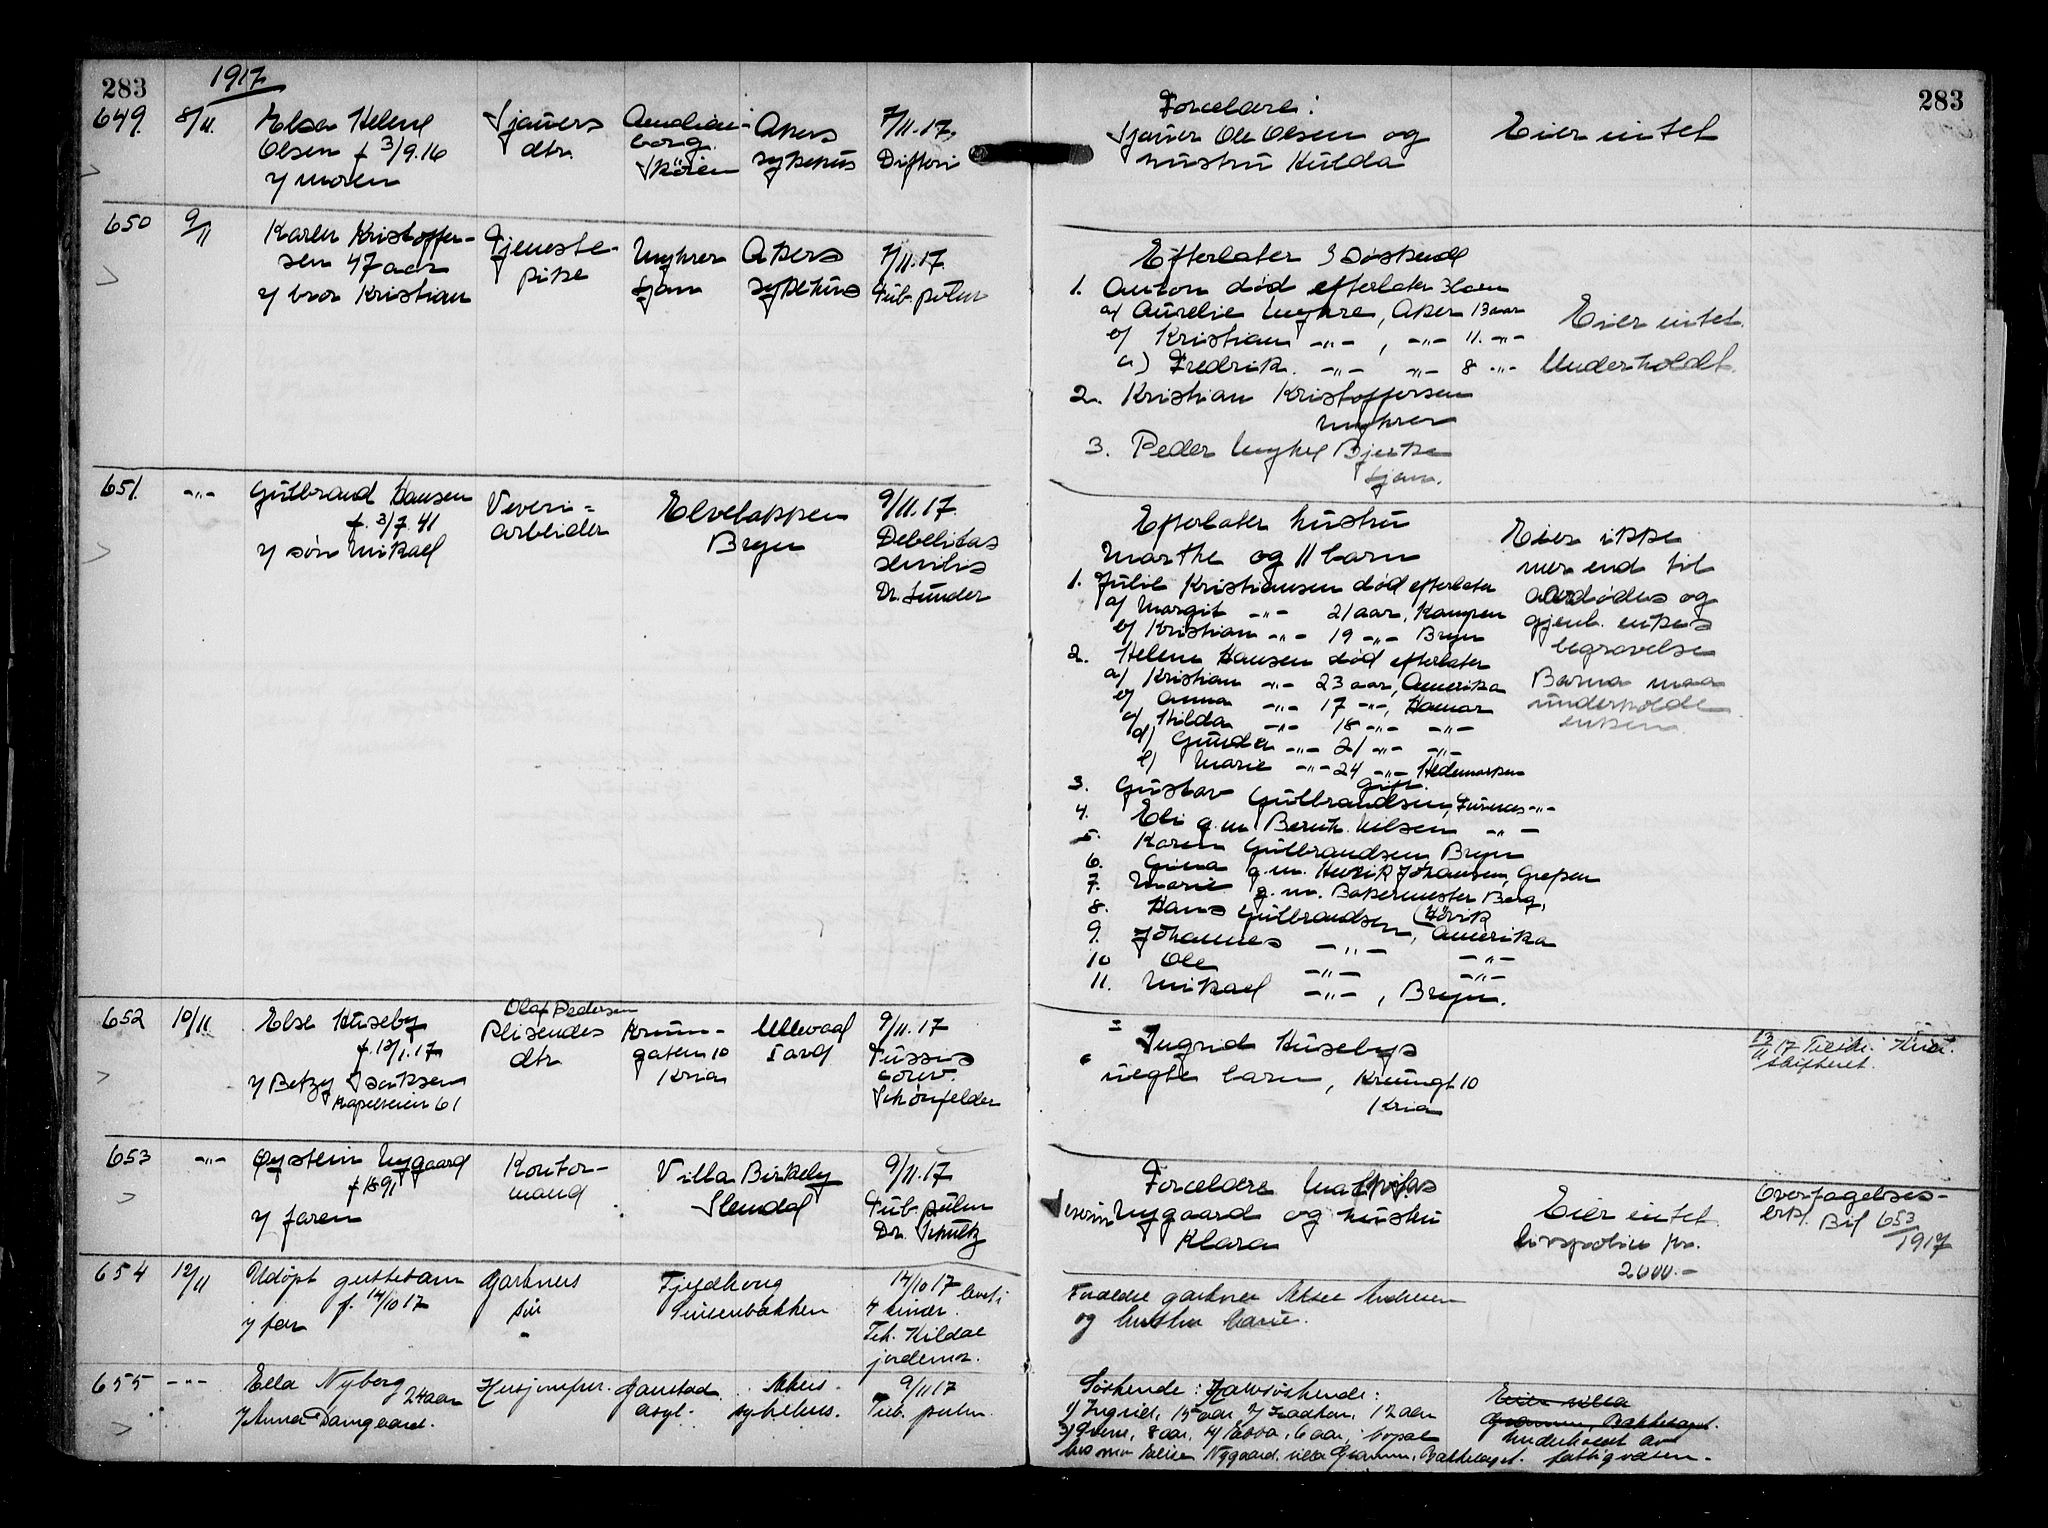 283
1917
283
649. 8/11. Elsa Helene
Olsen f 3/9.16
v/ moren
Sjauers
dtr.
Skøien
Akers
sykehus
7/11.17.
Difteri
Forældre:
Sjauer Ole Olsen og
hustru Hulda
Eier intet
650 9/11
Karen Kristoffer-
sen 47 aar
v/ bror Kristian
Tjeneste-
pike
Myhrer
Akers
sykehus
7/11.17.
Tub. pulm
Efterlater 3 søskend
1. Anton død efterlater 3 barn
a/ Aurelie Myhre, Aker 13 aar
b/ Kristian -"- , -"- 11. -"-
c) Fredrik. -"- -"- 8 -"-
2. Kristian Kristoffersen
Myhrer
3. Peder Myhre Bjerke
Eier intet.
Underholdt.
651. -"-
Gulbrand Hansen
f. 3/7.41
v/ søn Mikael
Veveri=
arbeider
Elvelappen
Bryn
9/11.17.
Debelitas
senilis
Dr. Lunder
Efterlater hustru
Marthe og 11 barn
1. Julie Kristiansen død efterlater
a/ Margit -"- 21 aar, Kampen
b/ Kristian -"- 19 -"- Bryn
2. Helene Hansen død efterlater
a/ Kristian -"- 23 aar, Amerika
b/ Anna -"- 17 -"-, Hamar
c/ Hilda -"- 18 -"- -"-
d/ Gunda -"- 21 -"- -"-
e/ Marie -"- 24 -"- Hedemarken
gift.
3. Gustav Gulbrandsen, Furnes -"-
4. Eli g.m. Bernh. Nilsen -"-
5. Karen Gulbrandsen Bryn
6. Gina g.m. Henrik Johansen, Grefsen
7. Marie g.m. Bakermester Berg,
(Høvik
8. Hans Gulbrandsen, Amerika
9. Johannes -"- -"-
10 Ole -"- -"-
11. Mikael -"- , Bryn.
Eier ikke
mer end til
avdødes og
gjenl. enkes
begravelse
Barna maa
underholde
enken.
652 10/11
Else Huseby
f. 12/1.17
v/ Betzy Isaksen
Kapelveien 61
Olaf Pedersen
Plisendes
dtr
Krum-
gaten 10
Kria
Ullevaal
9/11.17
Tussis
conv.
Schønfelder
Ingrid Husebys
uegte barn, Krumgt 10
Kria
13/11 17 Tilskr. Kria
skifteret.
653 -"-
Øystein Nygaard
f 1891
v/ faren
Kontor-
mand
Villa Birkely
Slemdal
9/11.17
Tub. pulm
Dr. Schultz
Forældre Mathias
Nygaard og hustru
Klara
Eier intet.
livspolise kr.
2000.-
Overtagelses-
erkl. Bil 653/1917
654 12/11
Udøpt guttebarn
f. 14/10 17
v/ far
Gartners
søn
Fjeldhoug
Sinsenbakken
14/10 17
4 timer.
Jch. Kildal
jordemor.
Forældre gartner Aksel Andresen
og hustru Marie.
655 -"-
Ella Nyborg
24 aar
v/ Anna Damgaard.
Husjomfru.
asyl.
Akers
sykehus.
9/11 17
Tub. pulm.
Søskende: Halvsøskende:
1) Ingrid, 15 aar 2/ Haakon, 12 aar
3) Sverre, 8 aar, 4/ Ebba, 6 aar, bopæl
hos mor Elise Nygaard, villa Granum, Bakkelaget.
Eier villa
Granum, Bakkelaget.
Underholdt av
fattigvæsen.